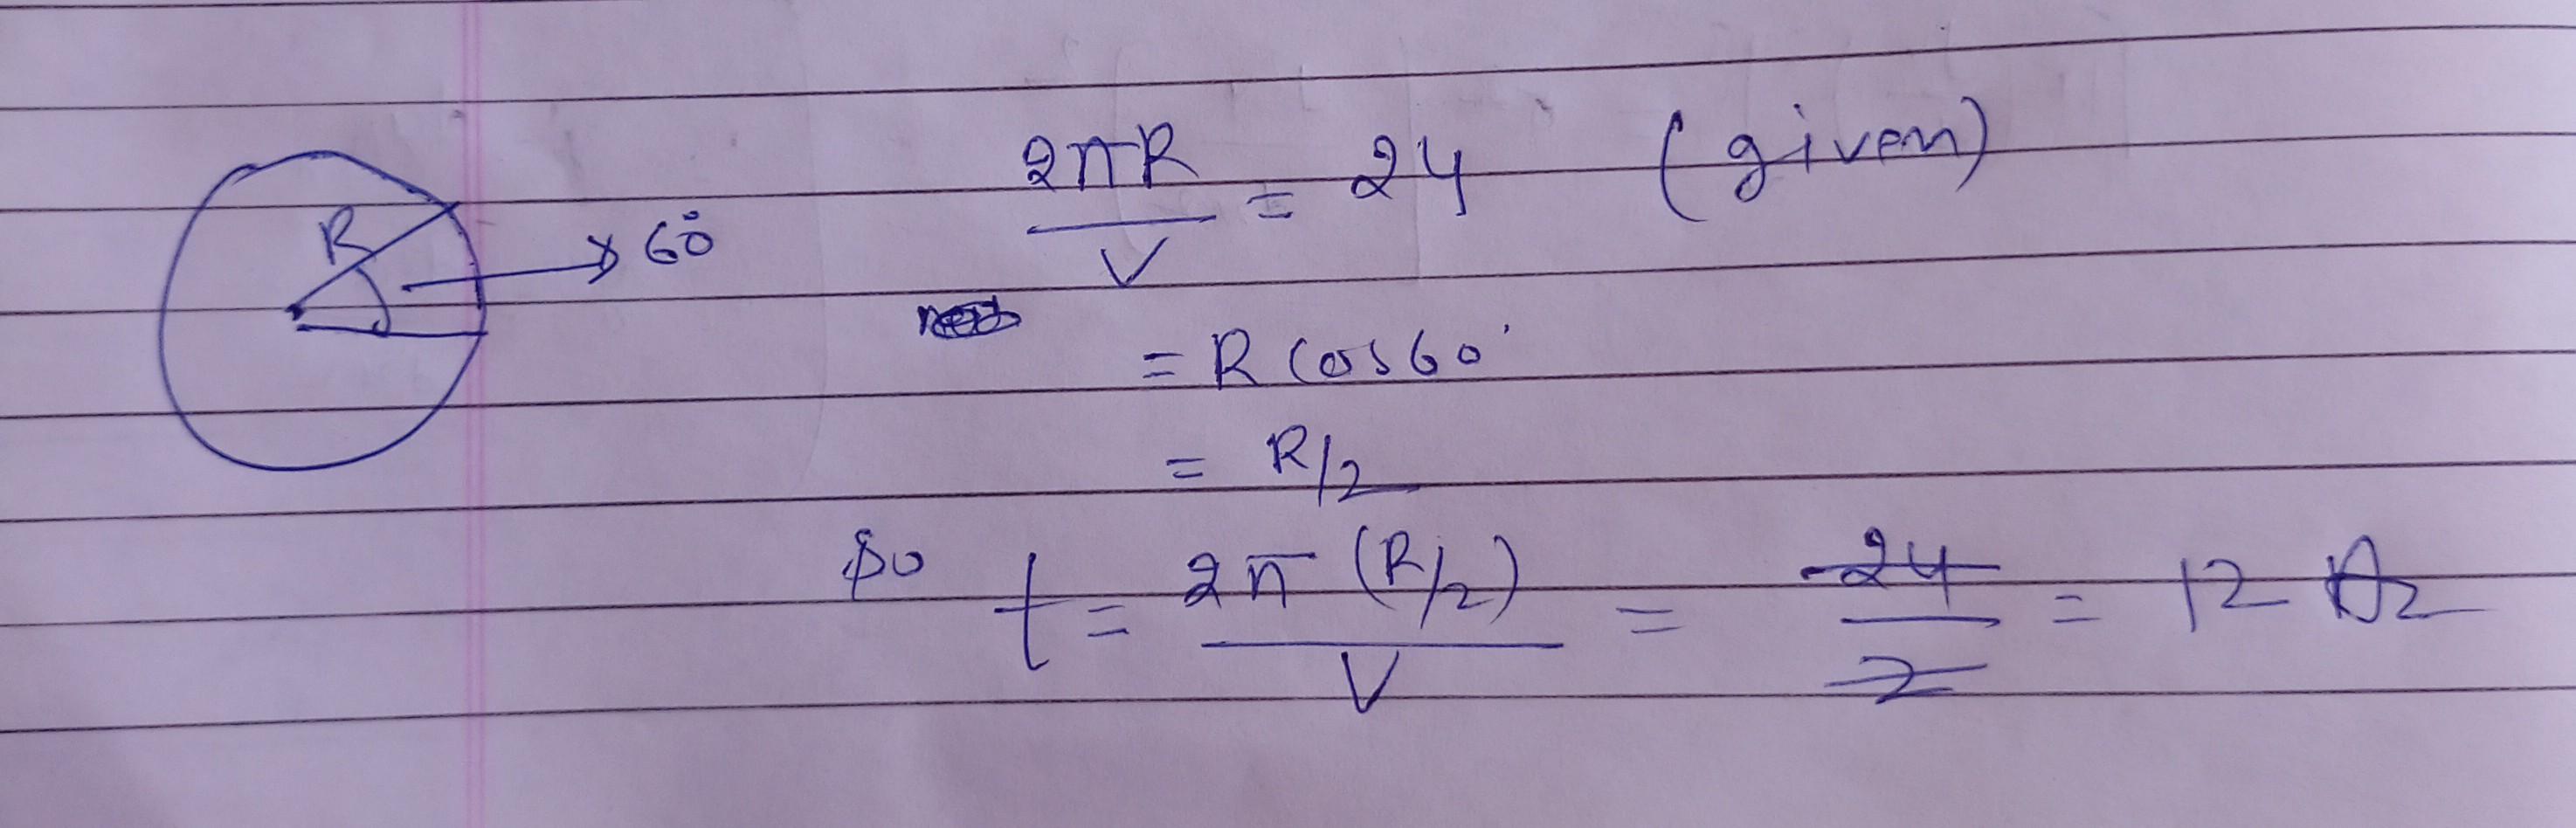 R
60°
2πR/V = 24 (given)
= R cos60°
= R/2
So t = 2π (R/2)/V = 24/2 = 12